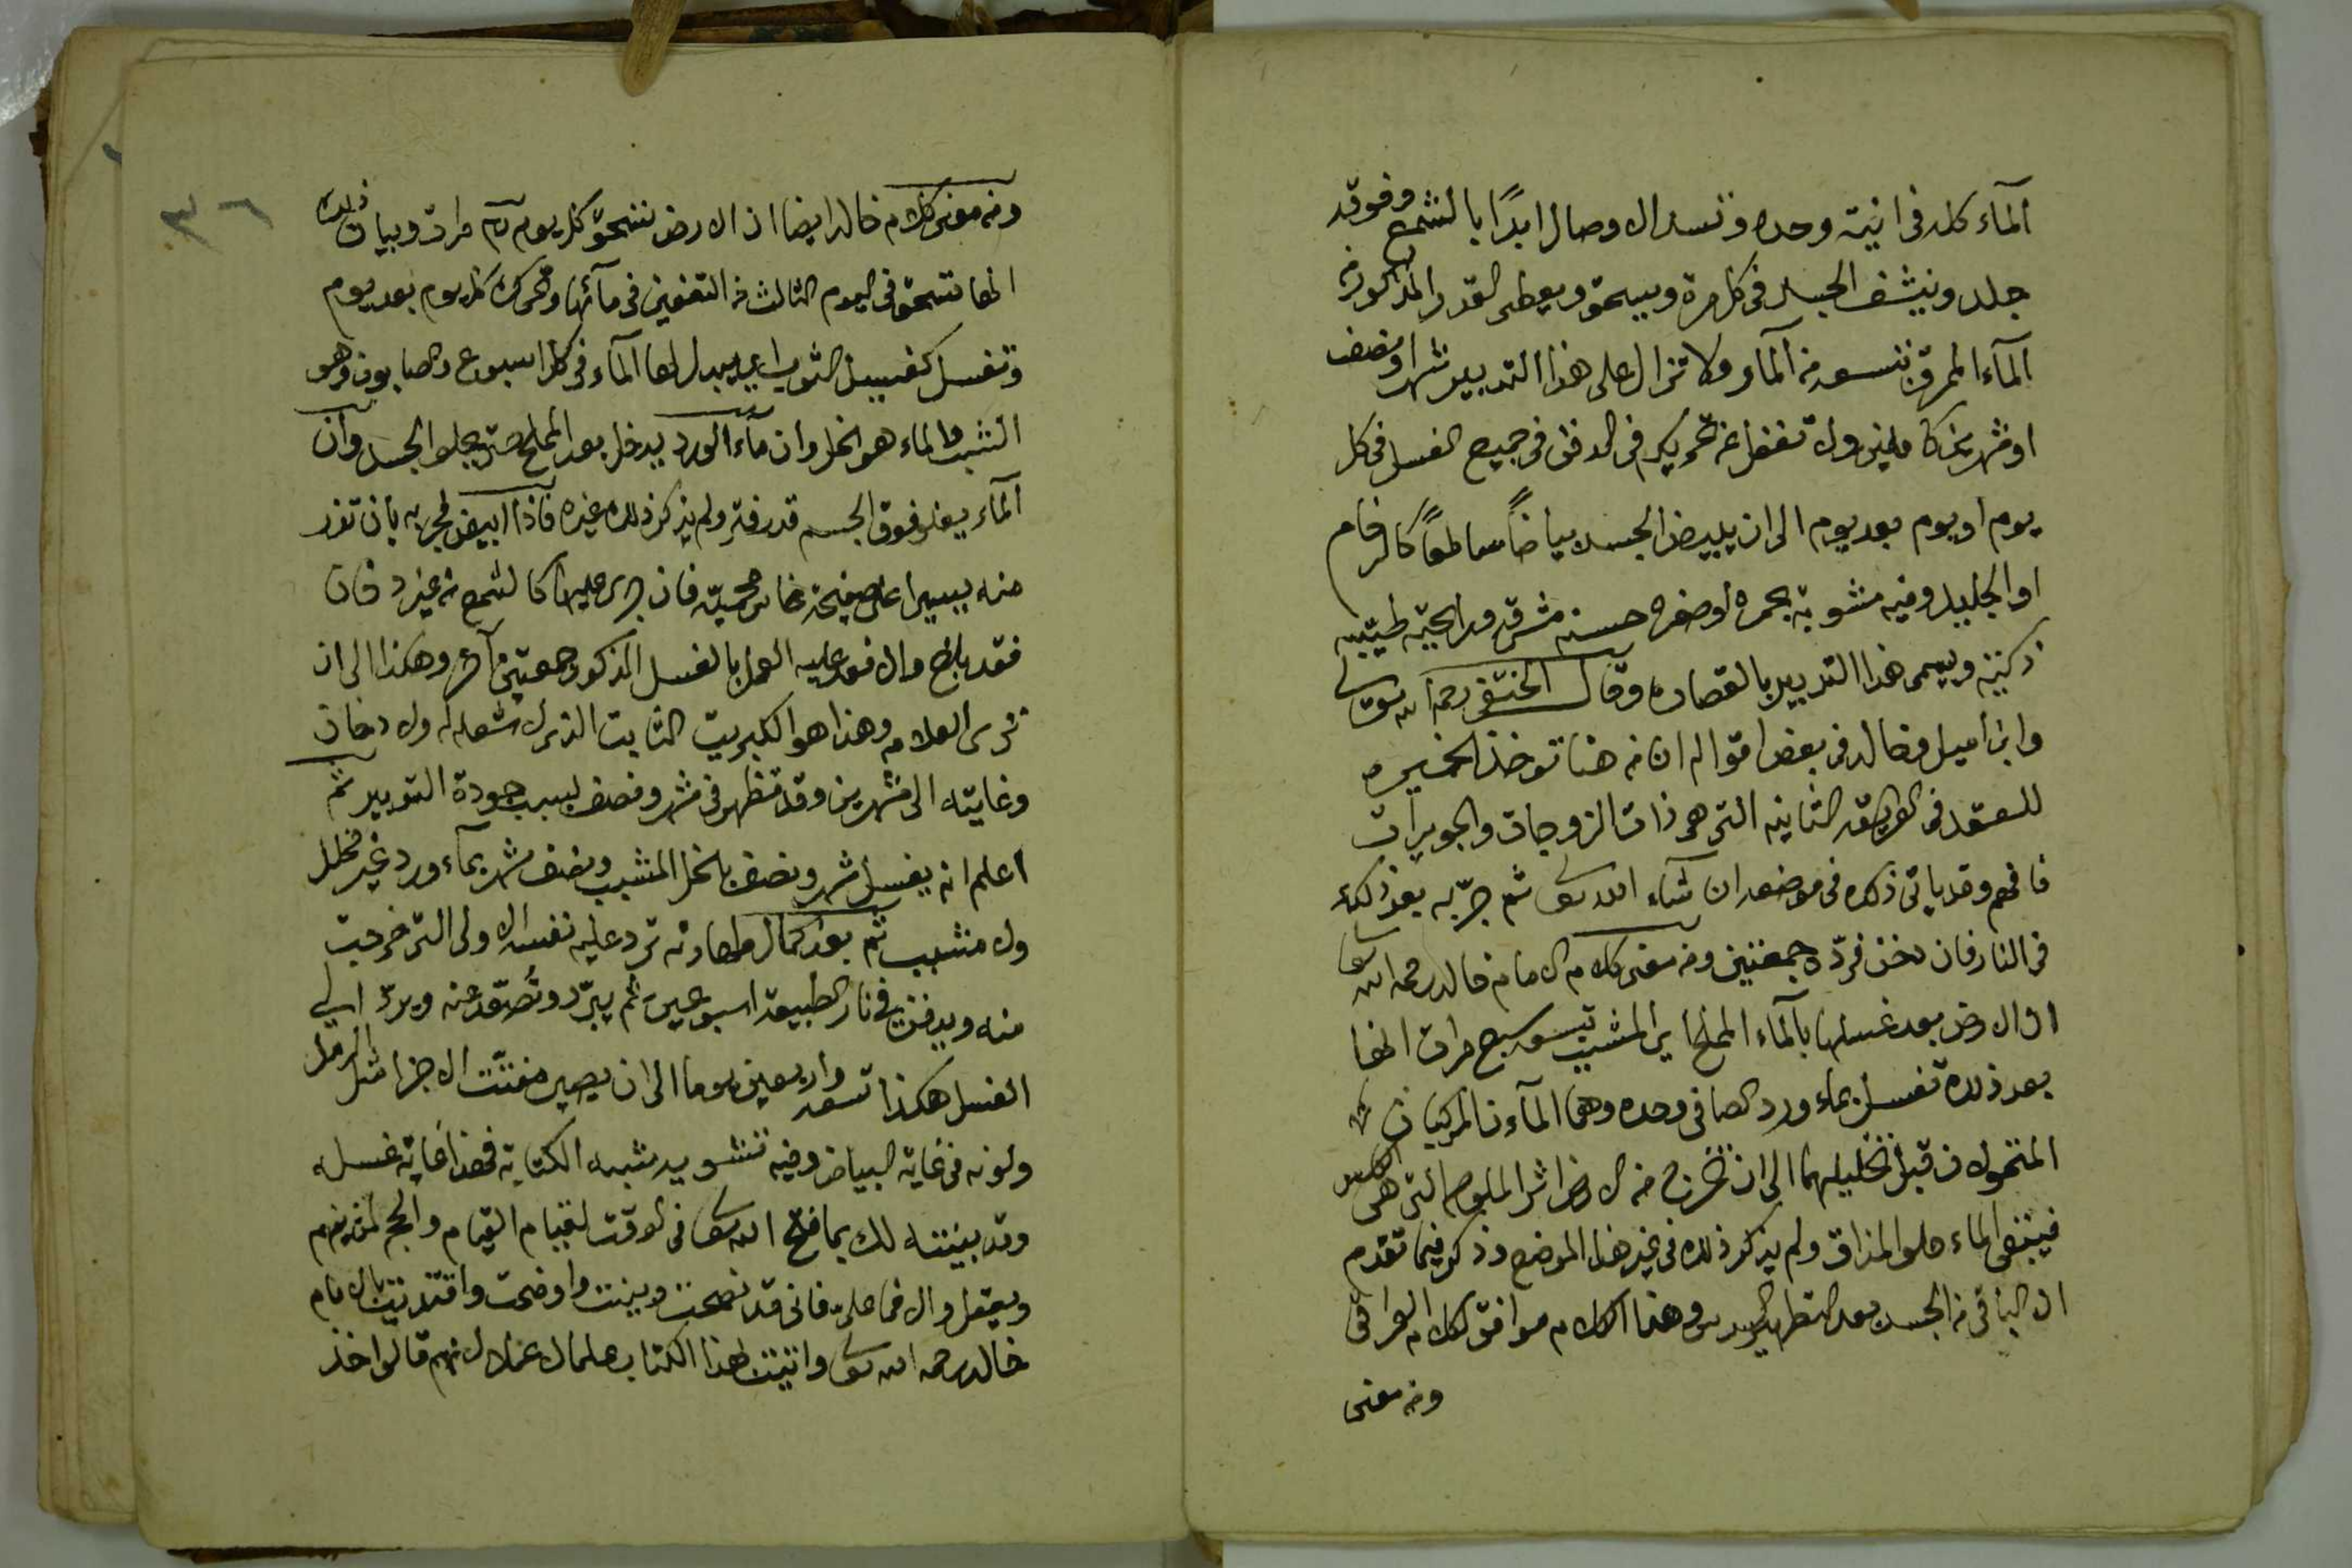 الماء كله في انية وحده وتسد الاوصال ابدًا بالشمع وفوقه
جلد وينشف الجسد في كل مرة ويسحق ويعطى القدر المذكور من
الماء المفرق بتسعه من الماء ولا تزال على هذا التدبير شهرا ونصف
او شهرين كاملين ولا تغفل عن تحريكه في الدفن في جميع الغسل في كل
يوم او يوم بعد يوم الى ان يبيض الجسد بياضاً ساطعاً كالرخام
او الجليد وفيه مشوبة بحمرة او صفرة حسنه مشرقه ورايحته طيبه
ذكيه ويسمى هذا التدبير بالقصاره وقال الخنفى رحمه الله تعالى
وابن اميل وخالد في بعض اقواله ان من هنا توخذ الخميره
للعقد في الطريقه الثانيه التي هي ذات الزوجات والجويرات
فافهم وقد ياتي ذكره في موضعه ان شاء الله تعالى ثم جرّبه بعد ذلك
في النار فان دخن فردّه جمعتين ومن معنى كلام الامام خالد رحمه الله تعالى
ان الارض بعد غسلها بالماء المملح اي المشبب تسع مرات انها
بعد ذلك تغسل بماء ورد الصافي وحده وهما الماءان المركبان
المتحولان قبل تحليلهما الى ان تخرج من الارض اثر الملوحه التي هي
فيبقى الماء حلو المذاق ولم يذكر ذلك في غير هذا الموضع وذكر فيما تقدم
ان الباقي من الجسد بعد التطهير السدس وهذا الكلام موافق لكلام العراقي
ومن معنى
٣٦
ومن معنى كلام خالد ايضا ان الارض تسحق كل يوم مرات وبيان ذلك
انها تسحق في اليوم الثالث من التعفين في مآئها وتحرك كل يوم بعد يوم
وتغسل كغسيل الثوب اي يبدل لها الماء في كل اسبوع والصابون هو
الشب والماء هو الخل وان ماء الورد يدخل بعد المملح حتى يحلو الجسد وان
الماء يعلو فوق الجسم قدر فتر ولم يذكر ذلك غيره فاذا ابيض فجربه بان تذر
منه يسيرا على صفيحة نحاس محميّه فان جرى عليها كالشمع من غير دخان
فقد بلغ والا فعد عليه العمل بالغسل المذكور جمعتين آخر وهكذا الى ان
ترى العلامه وهذا هو الكبريت الثابت الذي لا شعله له ولا دخان
وغايته الى شهرين وقد تظهر في شهر ونصف لسبب جودة التدبير ثم
اعلم انه يغسل شهر ونصف بالخل المشبب ونصف شهر بماء ورد غير مخلل
ولا مشبب ثم بعد كمال طهارته ترد عليه نفسه الاولى التي خرجت
منه ويدفن في نار الطبيعه اسبوعين ثم يبرّد وتُصعّد عنه ويردّ الى
الغسل هكذا تسعه واربعين يوما الى ان يصير مفتّت الاجزا مثل الرمل
ولونه في غاية البياض وفيه تشويه شبه الكتابة فهذا غاية غسله
وقد بينته لك بما فتح الله تعالى في الوقت
ويعقل والا فما عليّ فاني قد نصحت وبينت واوضحت واقتديت بالامام
خالد رحمه الله تعالى واثبت هذا الكتاب علما لانهم قالوا اخذ